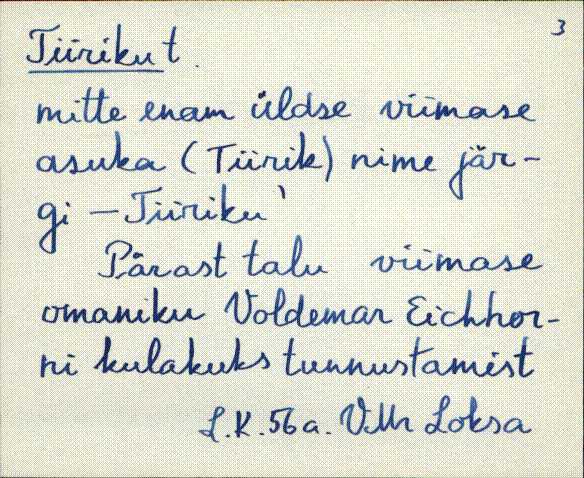 3
Tiiriku t.
mitte enam üldse viimase
asuka (Tiirik) nime jär-
gi — Tiiriku'
Pärast talu viimase
omaniku Voldemar Eichhor-
ni kulakuks tunnustamist
L.K. 56 a. V. Mr Loksa